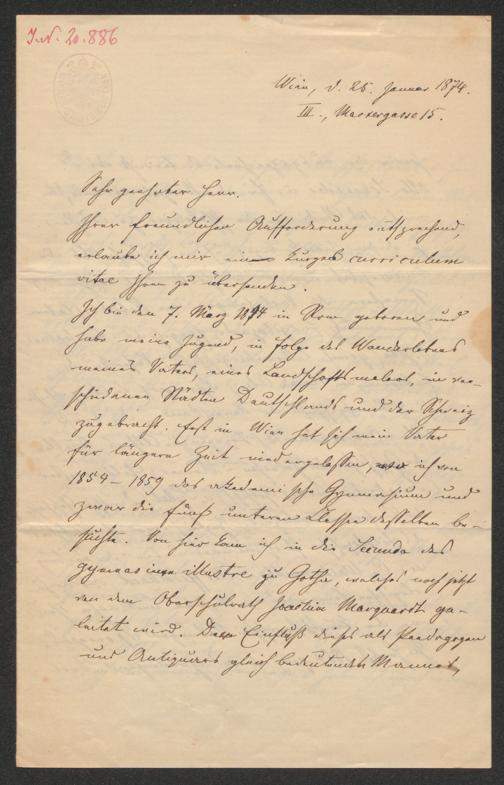 J.N. 20.886
Wien, d. 25. Januar 1874.
III., Marxergasse 15.
Sehr geehrter Herr.
Ihrer freundlichen Aufforderung entsprechend,
erlaube ich mir ein kurzes curriculum
vitae Ihnen zu übersenden.
Ich bin den 7. März 1844 in Rom geboren und
habe meine Jugend, in folge des Wanderlebens
meines Vaters, eines Landschaftsmalers, in ver-
schiedenen Städten Deutschlands und der Schweiz
zugebracht. Erst in Wien hat sich mein Vater
für längere Zeit niedergelassen, wo ich von
1854–1859 das akademische Gymnasium und
zwar die fünf unteren Classen desselben be-
suchte. Von hier kam ich in die Secunda des
gymnasium illustre zu Gotha, welches noch jetzt
von dem Oberschulrath Joachim Marquardt ge-
leitet wird. Der Einfluß dieses als Paedagogen
und Antiquars gleich bedeutenden Mannes,